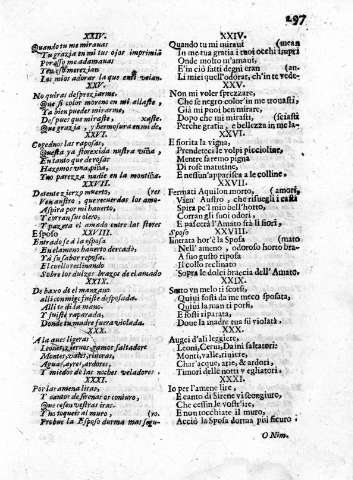 297
XXIV.
Quando tu me mirauas
Tu grazia en mi tus ojos imprimia
Por esso me adamauas
Y en esso merezian
Los mios adorar lo que en ti veian.
XXV.
No quieras despreziarme,
Que si color moreno en mi allaste,
Ya bien puedes mirarme,
Despues que miraste,
Que grazia, y hermosura en mi de,
xaste.
XXVI.
Cogednos las raposas,
Questa ya florezida nuestra viña,
En tanto que de rosas
Hazemos vna piña,
Y no parezza nadie en la montiña.
XXVII.
Detente zierzo muerto,
(res
Ven austro, que recuerdas los amo-
Aspira por mi huerto,
Y corran sus olores,
Y pazera el amado entre las flores
Esposo XVIII.
Entrado se à la esposa
En el ameno huerto deseado,
Y à su sabor reposa,
El cuello reclinado
Sobre los dulzes brazos de el amado
XXIX.
De baxo del manzano
alli conmigo fuiste desposada.
Alli te di la mano.
Y fuiste reparada,
Donde tu madre fuera violada.
XXX.
A las aues ligeras
Leones, zieruos, gamos saltadores
Montes, valles, riueras,
Aguas, ayres, ardores,
Y miedos de las noches veladores.
XXXI.
Por las amenas liras,
Y cantos de sirenas os coniuro,
Que cessen vuestras iras.
Y no toqueis al muro,
(ro.
Porque la Esposa duerma mas segu-
XXIV.
Quando tu mi miraui
(mean
In me tua gratia i tuoi occhi impri
Onde molto m'amaui,
E'in ciò fatti degni eran
(an.
Li miei quell'odorar, ch'in te vede-
XXV.
Non mi voler sprezzare,
Che se negro color'in me trouasti,
Già mi puoi ben mirare,
Dopo che mi mirasti,
(sciasti
Perche gratia, e bellezza in me la-
XXVI.
E fiorita la vigna,
Prendeteci le volpi picciolinẹ,
Mentre faremo pigna
Di rose matutine,
E nessun'apparisca a le colline.
XXVII.
Fermati Aquilon morto,
(amori,
Vien' Austro, che risuegli i casti
Spira pe'l mio bell'horto,
Corran gli suoi odori,
E pascerà l'Amato frà li fiori,
Sposo XXVIII.
Entrata hor'è la Sposa
(mato
Nell' ameno, odoroso horto bra-
A suo gusto riposa
Il collo reclinato
Sopra le dolci braccia dell'Amato.
XXIX.
Sotto vn melo ti scorsi,
Quiui fosti da me meco sposata,
Quiui la man ti porsi,
E fosti riparata,
Doue la madre tua fù violata.
XXX.
Augei d'ali leggiere,
Leoni, Cerui, Daini saltatori:
Monti, valle, riuiere,
Chur'acque, arie, & ardori,
Timori delle notti vegliatori.
XXXI.
Io per l'amene lire,
E canto di Sirene vi scongiuro,
Che cessin le vostr'ire,
E non tocchiate il muro,
Acciò la Sposa dorma più sicuro.
O Nim.